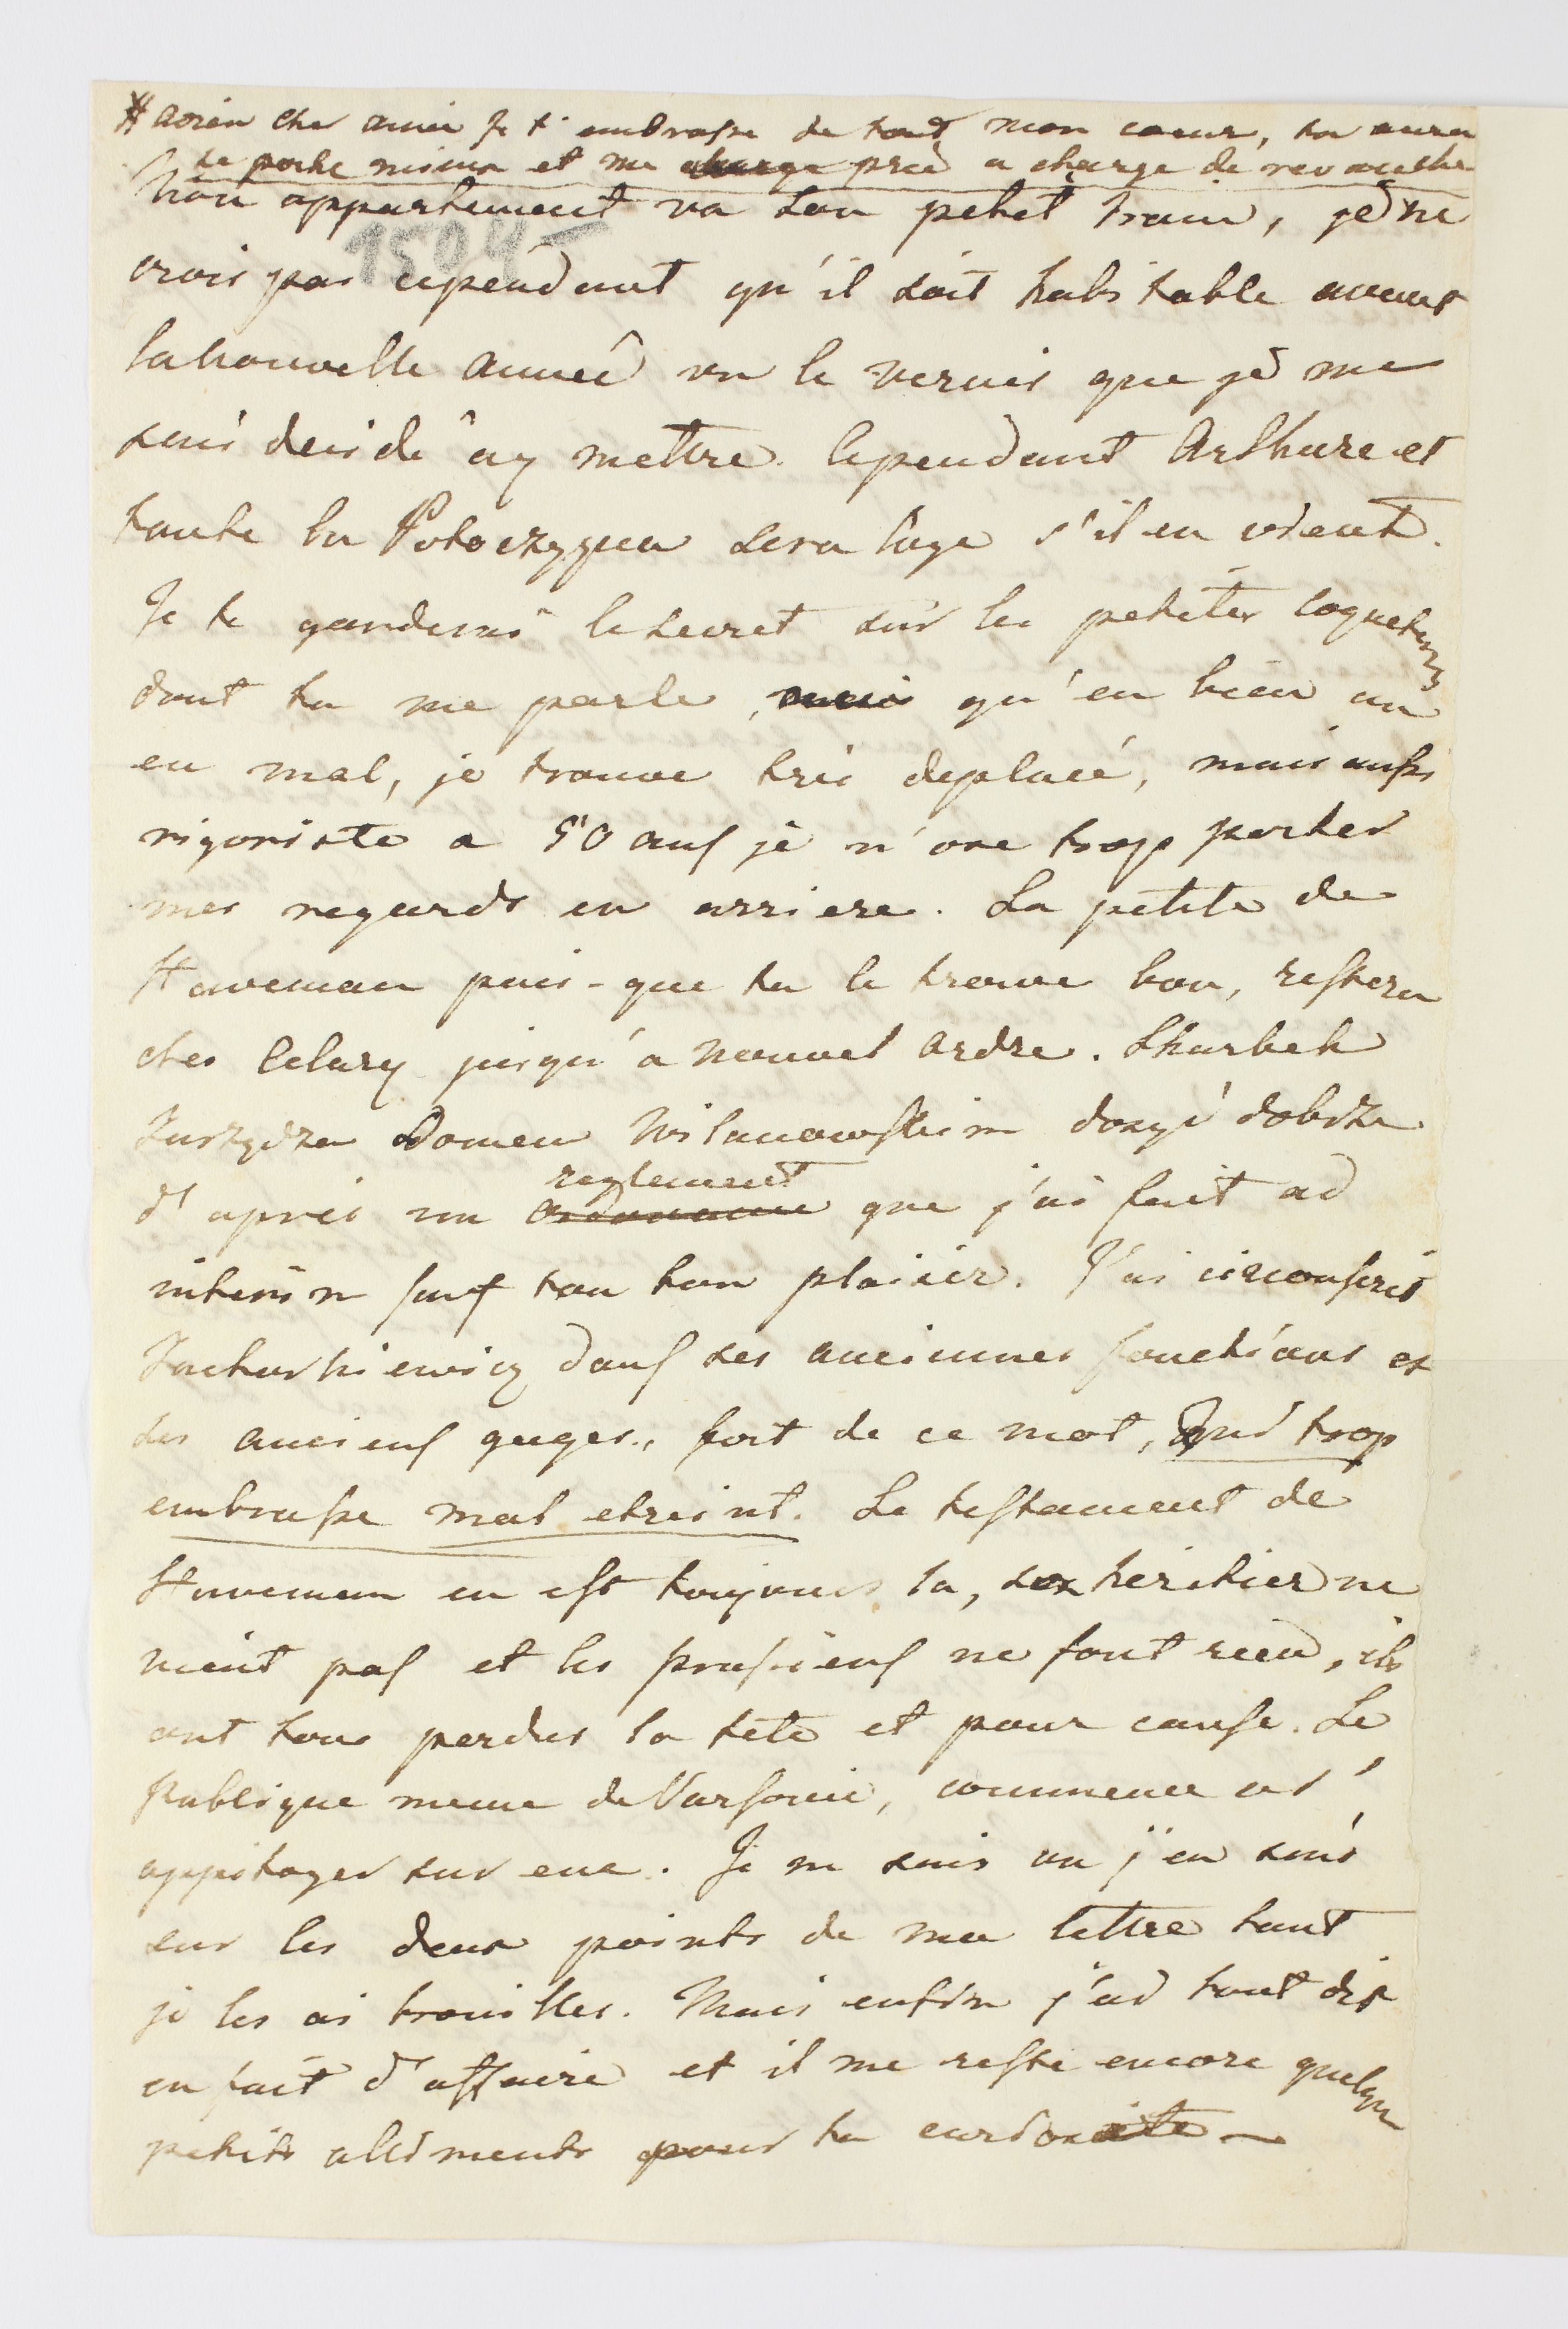 # adieu cher amie je t'embrasse de tout mon coeur,
te porte mieux et me charge pred a charge de revanche
Mon appartement va son petit train, je ne
crois pas cependant qu'il soit habitable avant
1504
la nouvelle année vu le vernis que je me
suis decidé ây mettre. Cependant Arthure et
toute la sera logé s'il en vient.
Je te garderai le secret sur les petites coqueteries
dont tu me parle, mais qu'en bien ou
en mal, je trouve très deplacé, mais aussi
rigoriste a 50 ans je n'ose trop porter
mes regards en arriere. La petite de
Hauveman puis-que tu le trouve bon, restera
ches Celary jusqu'a nouvel ordre. Skarbek
Zurzydza Domem Wilanowskim dosyć dobrze
d'apres un ordonance reglement que j'ai fait ad
interim sauf ton bon plaisir. J'ai circonscrit
dans ses anciennes fonctions et
ses anciens gages, fort de ce mot, Qui trop
embrasse mal etreint. Le testament de
Hauveman en est toujours la, son heritier ne
vient pas et les prussiens ne font rien, ils
ont tous perdus la tete et pour cause. Le
publique meme de Varsovie, commence as'
appitoyer sur eux. Je ne sais ou j'en suis
sur les deux points de ma lettre tant
je les ai brouilles. Mais enfin j'ai tout dit
en fait d'affaire et il me reste encore quelque
petits aliments pour ta curiosite